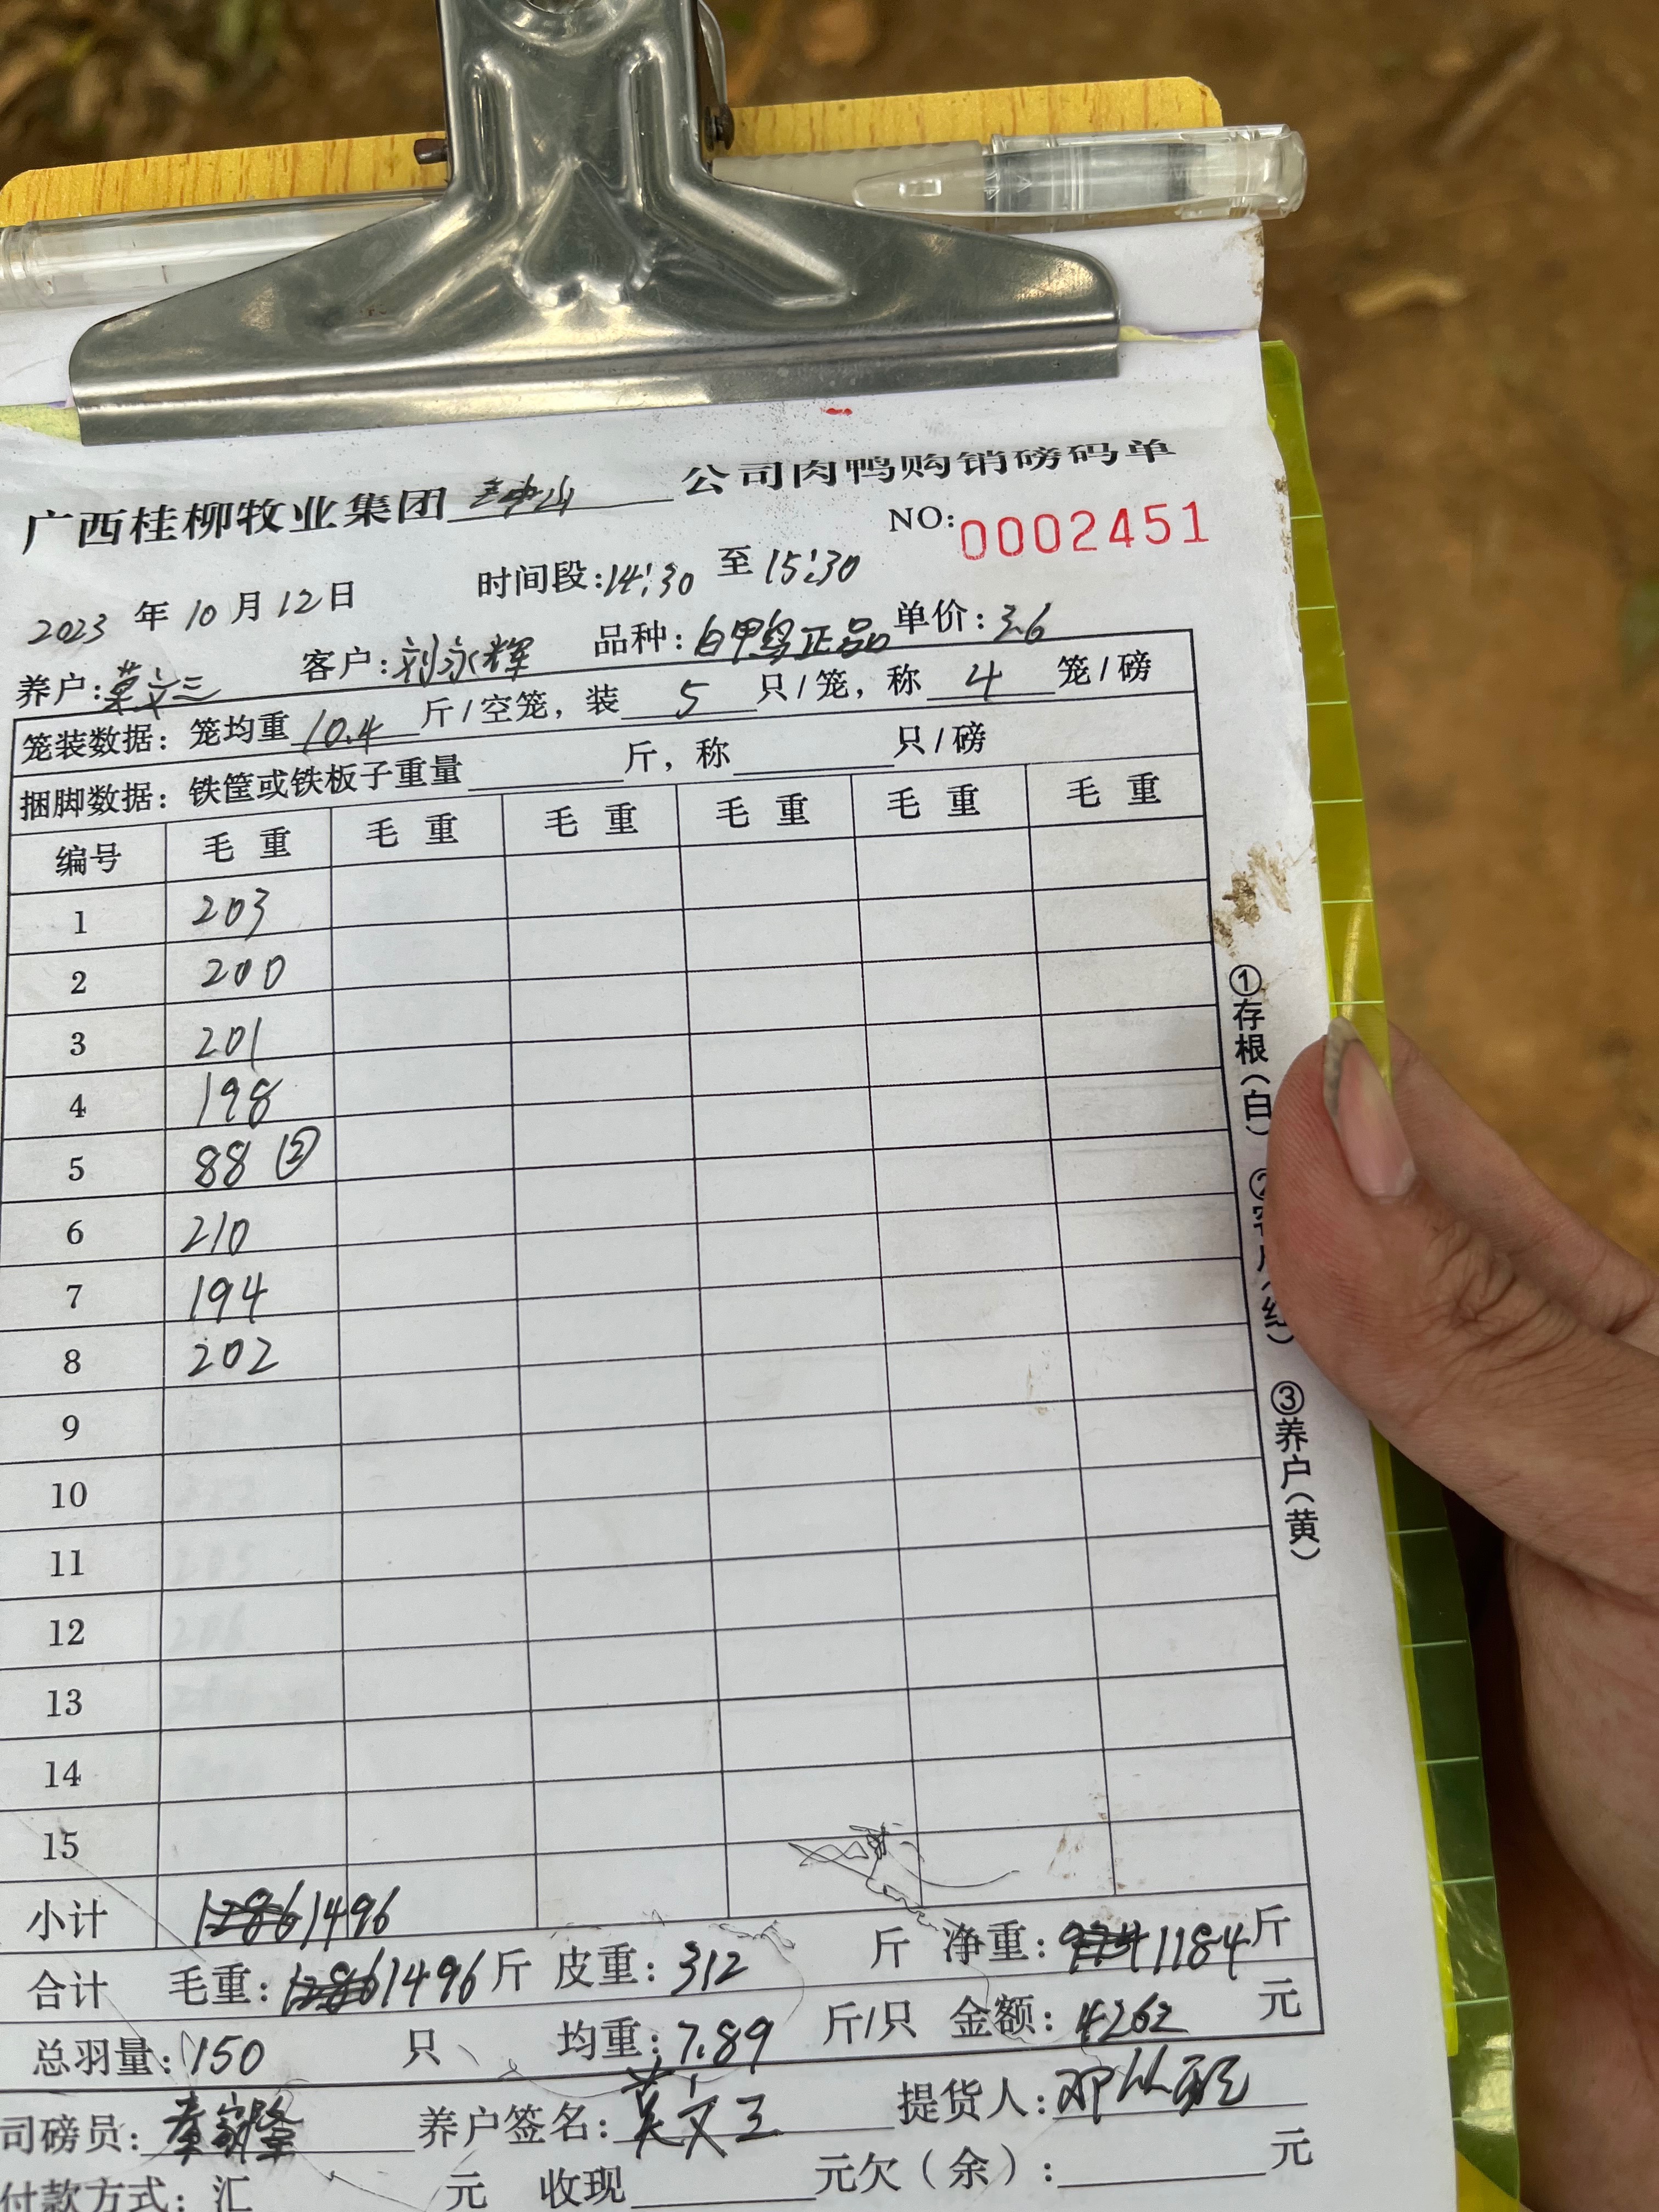 广西桂柳牧业集团 公司肉鸭购销磅码单
NO: 0002451
2023 年 10 月 12 日 时间段: 14:30 至 15:30
养户: 莫文三 客户: 刘永辉 品种: 白甲鸟正品 单价: 3.6
笼装数据: 笼均重 10.4 斤/空笼, 装 5 只/笼, 称 4 笼/磅
捆脚数据: 铁筐或铁板子重量 斤, 称 只/磅
编号 毛重 毛重 毛重 毛重 毛重 毛重
1 203
2 200
3 201
4 198
5 88 ②
6 210
7 194
8 202
9
10
11
12
13
14
15
小计 1286 1496
合计 毛重: 1286 1496 斤 皮重: 312 斤 净重: 974 1184 斤
总羽量: 150 只 均重: 7.89 斤/只 金额: 4262 元
司磅员: 养户签名: 莫文三 提货人:
付款方式: 汇 元 收现 元欠(余): 元
①存根(白) ② ③养户(黄)